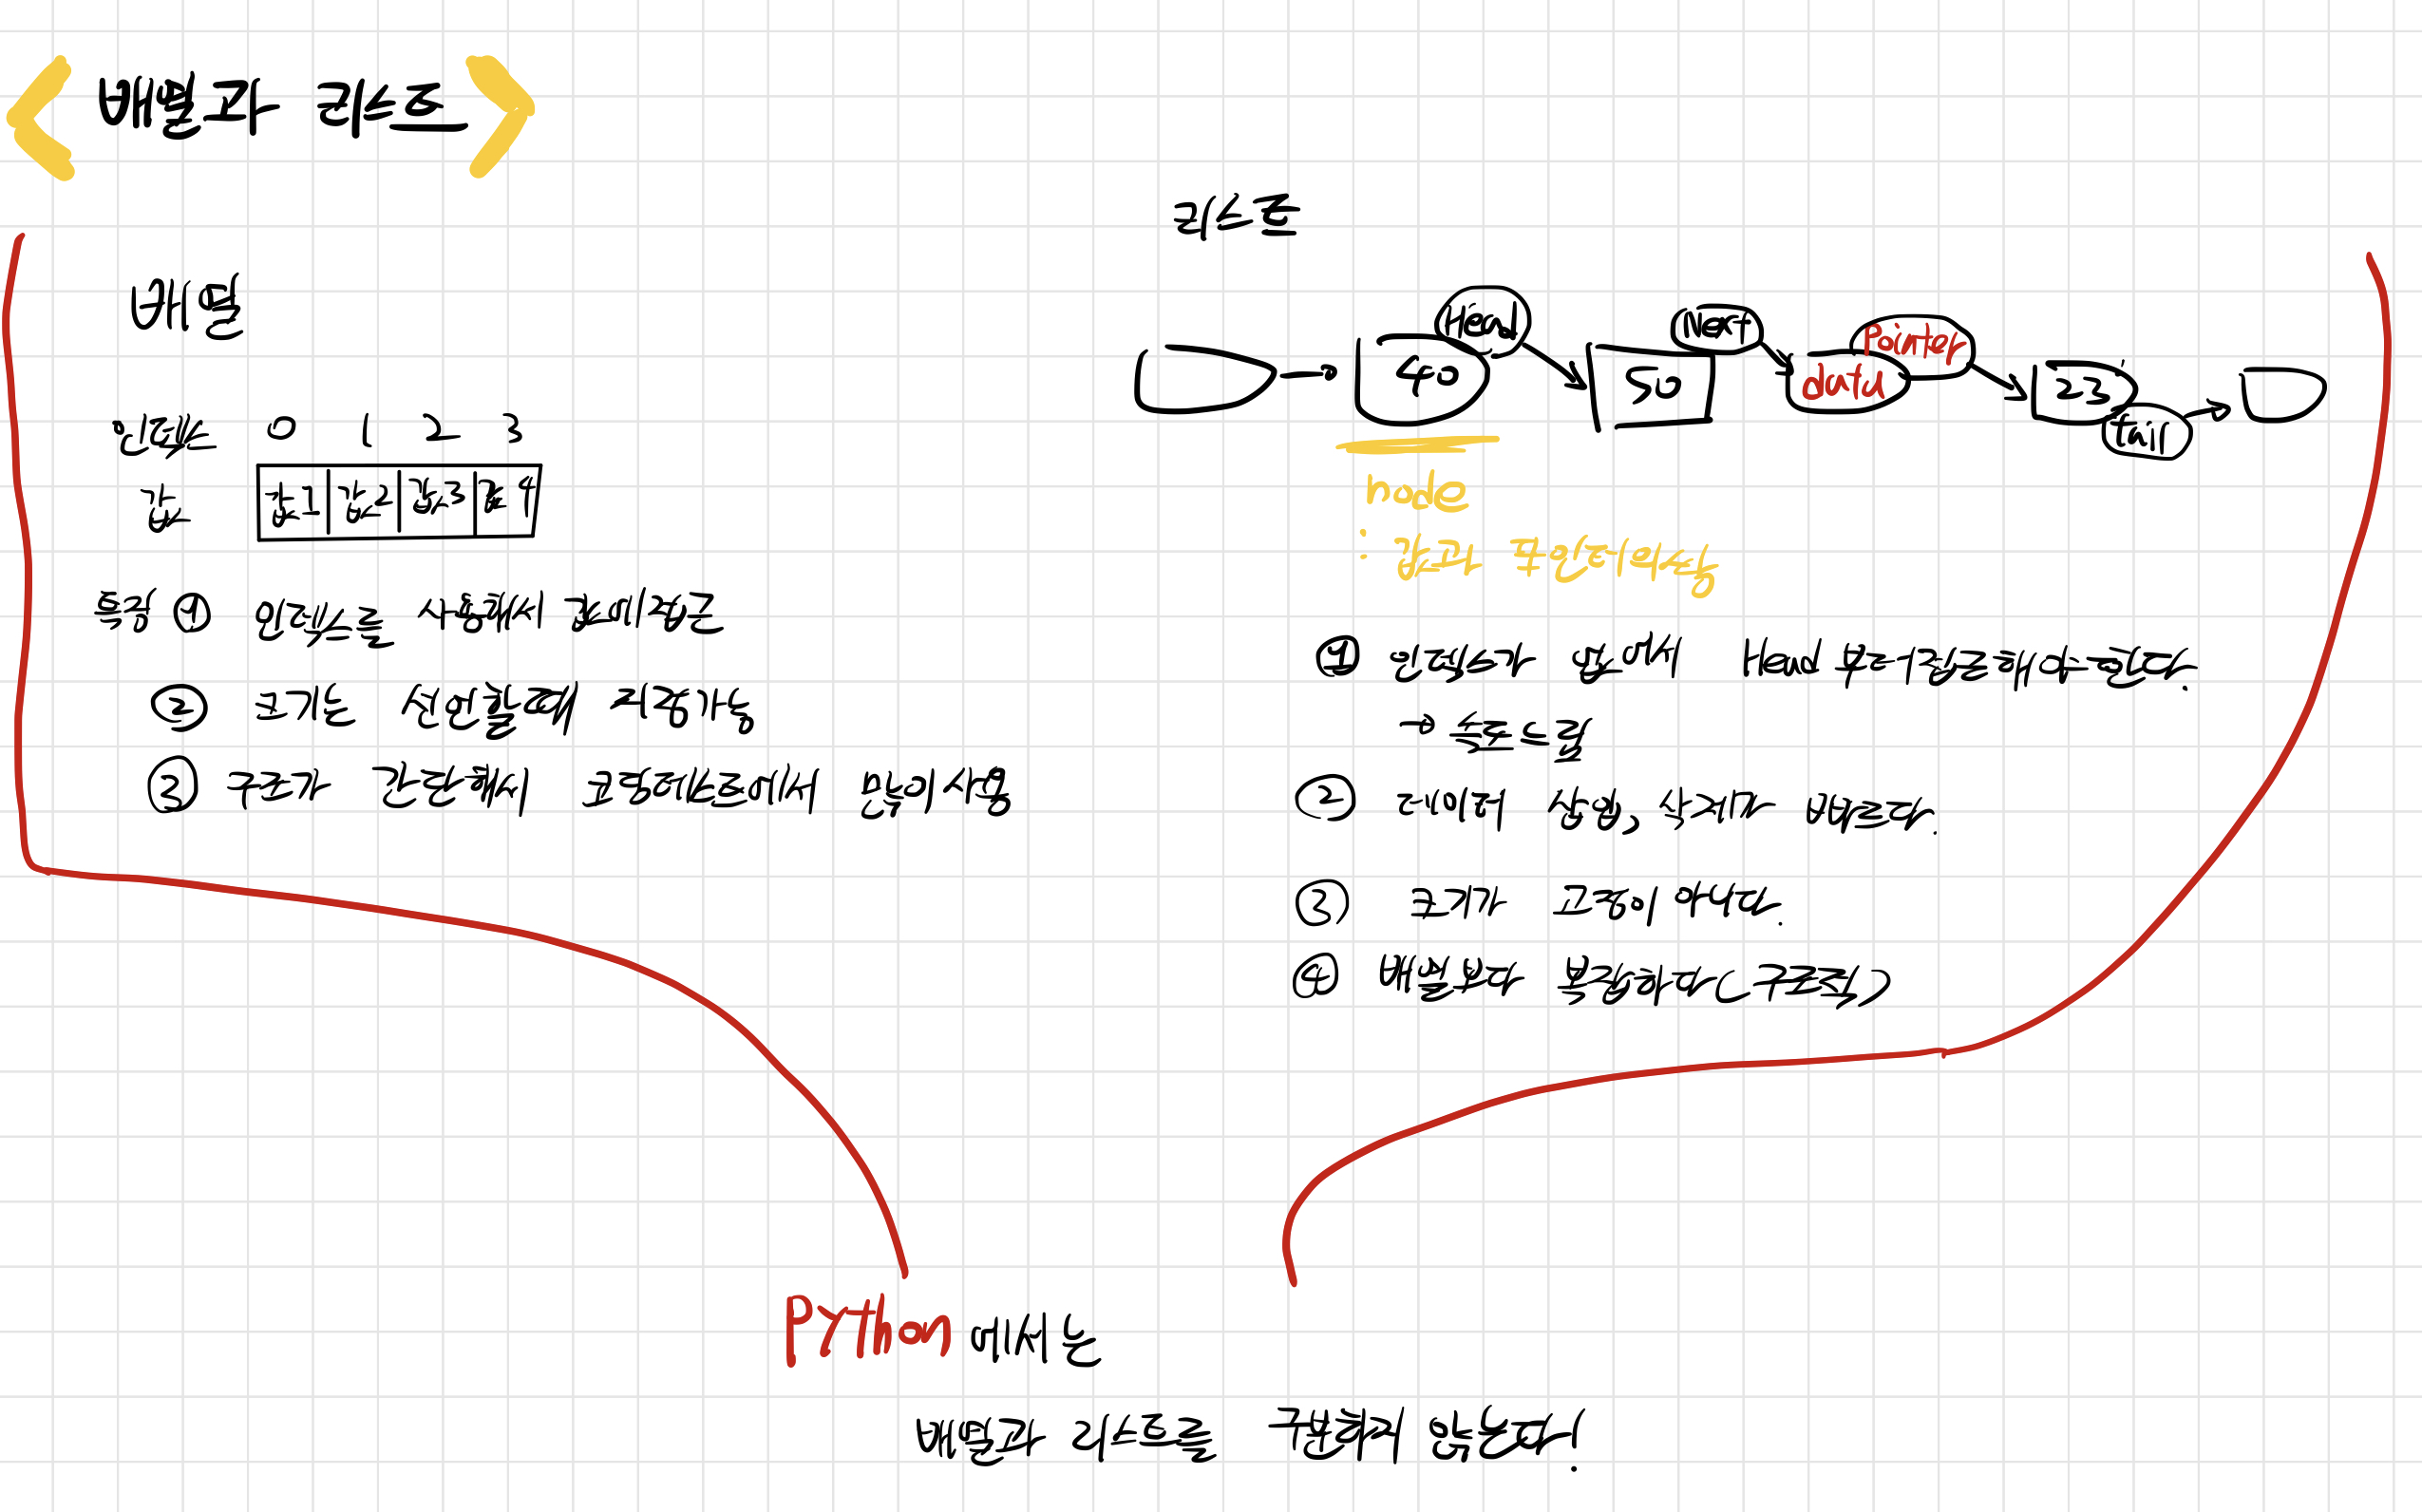 배열과 리스트
배열
인덱스 0 1 2 3
값 값1 값2 값3 값4
특징 ① 인덱스를 사용해서 값에 접근
② 크기는 선언할 때 지정가능
③ 구조가 간단해서 코딩테스트에서 많이 사용
리스트
40 Head 50 Next data Pointer 33 tail
node
: 값과 포인터의 쌍
① 인덱스가 없어서 Head 부터 접근해야 한다.
→ 속도 느림
② 데이터 삽입, 삭제가 빠르다.
③ 크기가 고정이 아니다.
④ 배열보다 복잡하다 (구조)
Python 에서는
배열과 리스트를 구분하지 않는다!